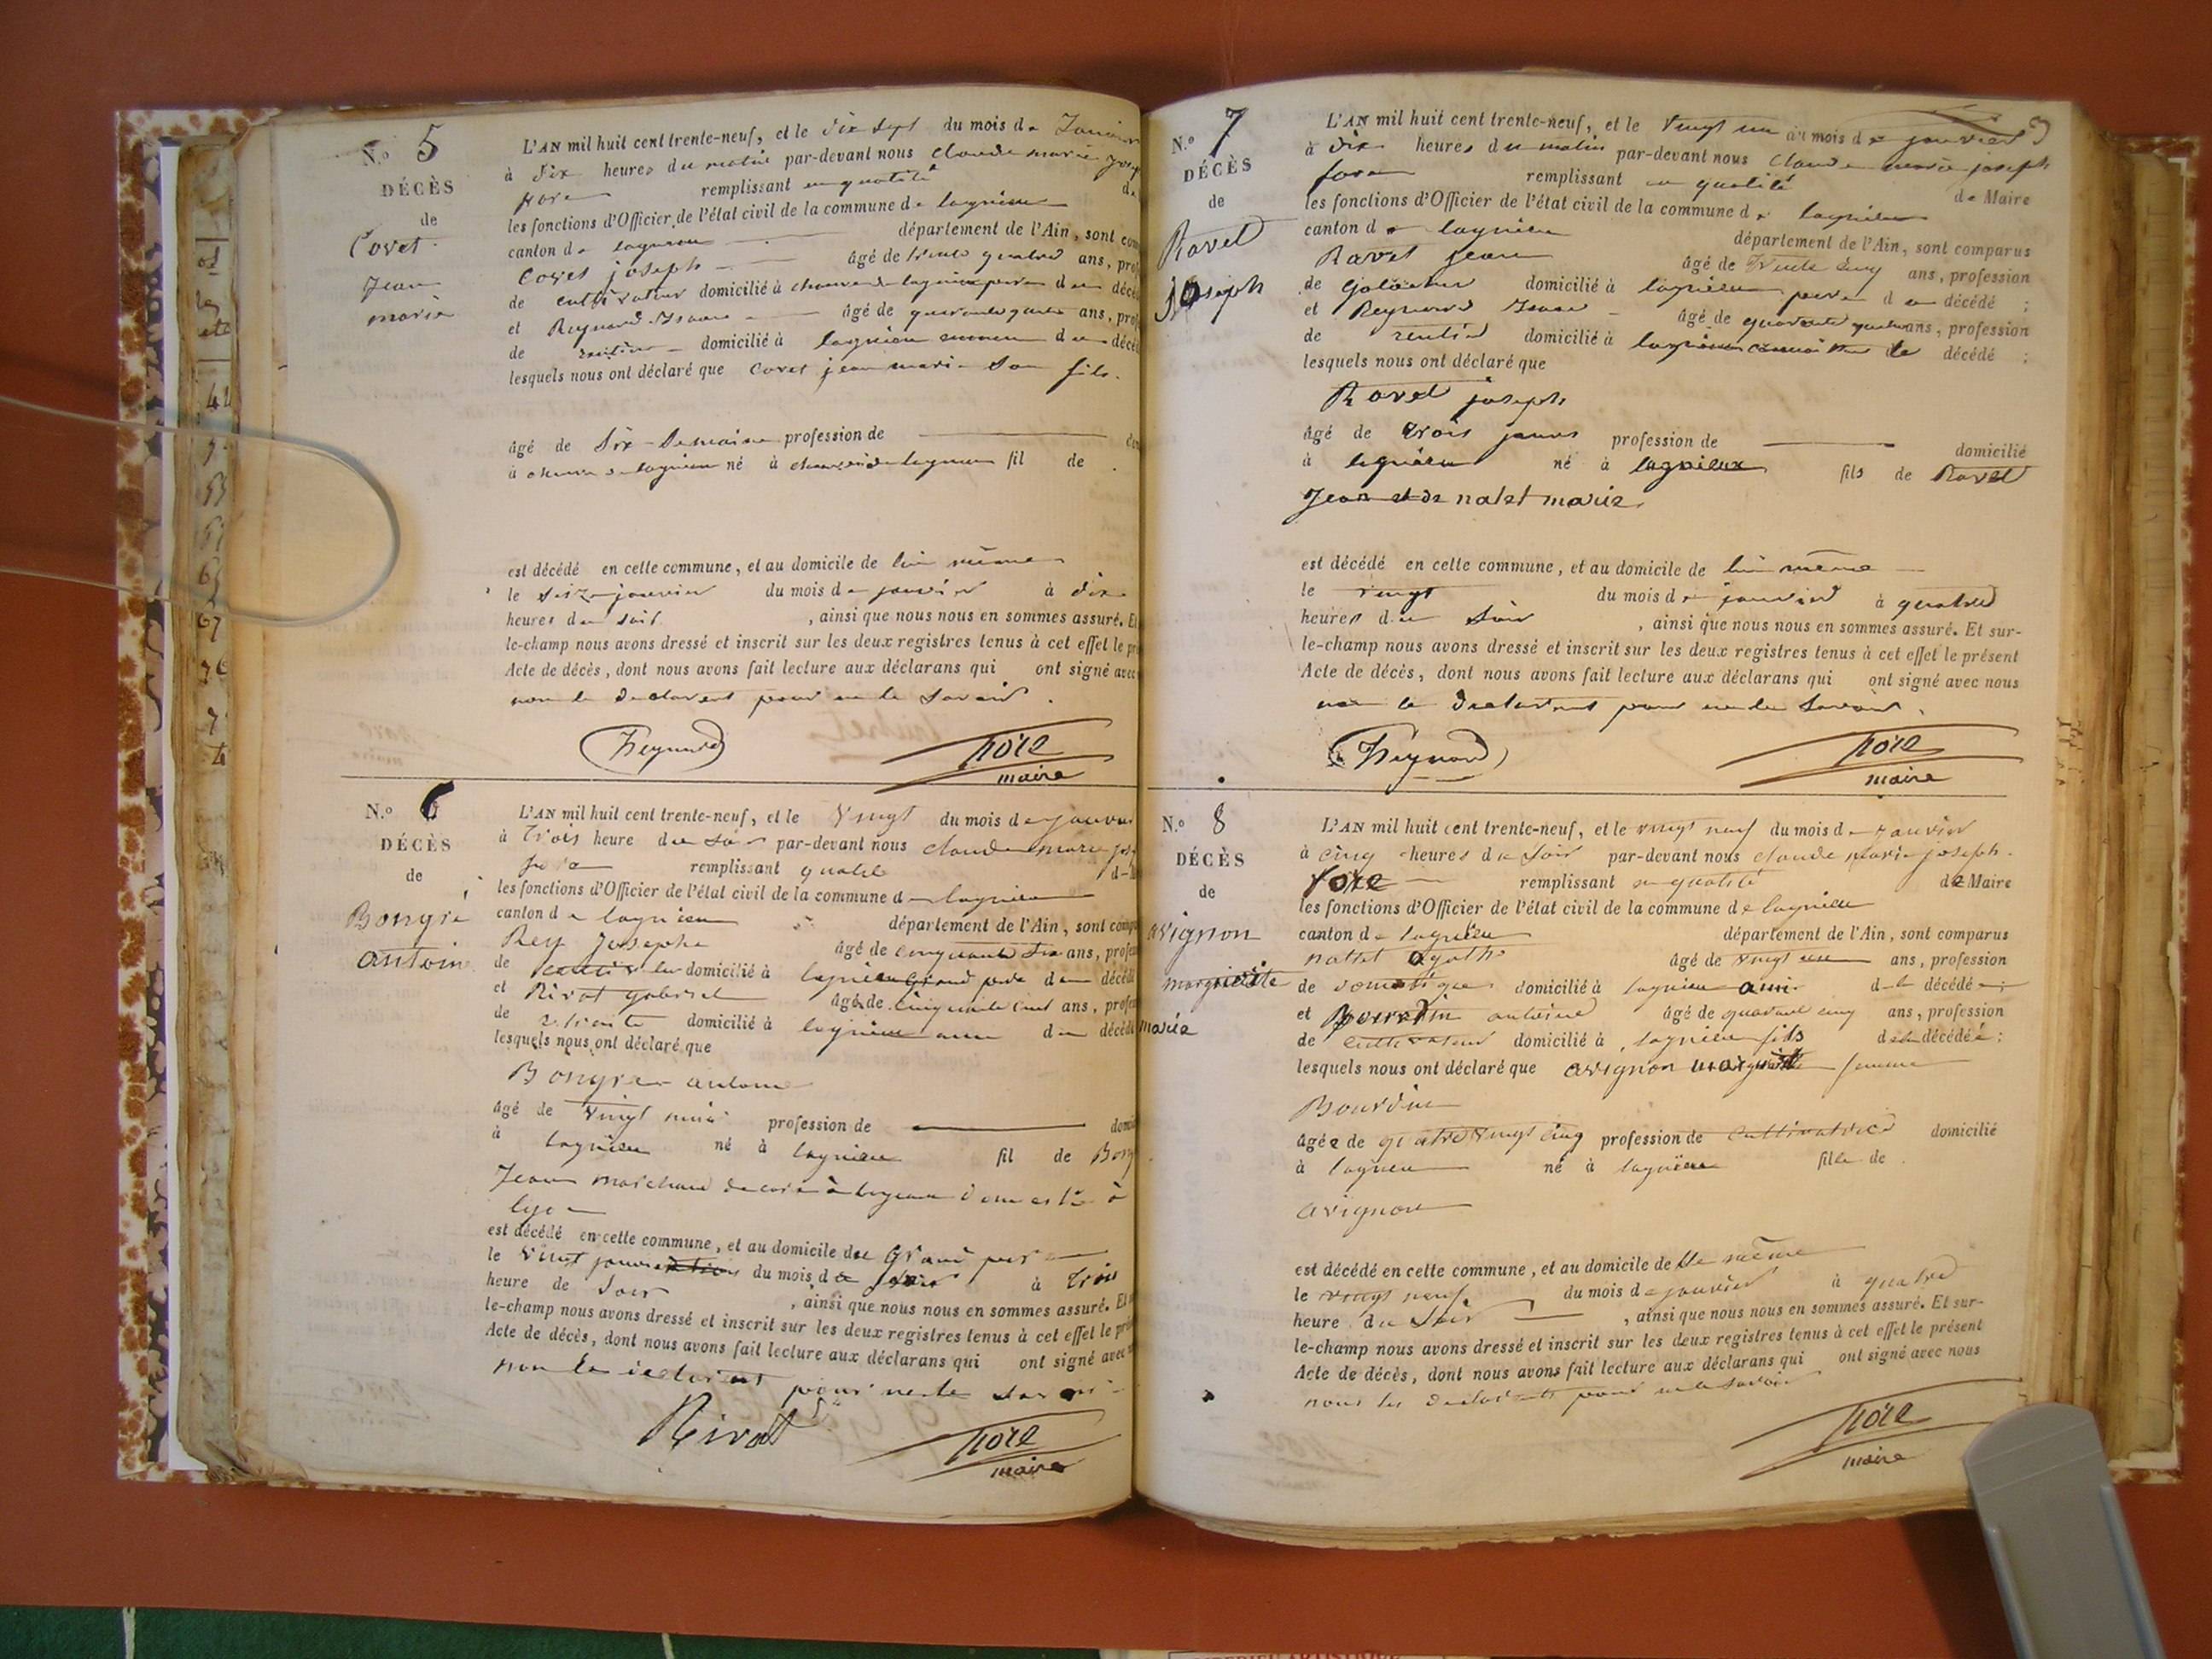 N.o 5
DÉCÈS
de
Covet
Jean
marie
L'AN mil huit cent trente-neuf, et le dix sept du mois de Janvier
à dix heures du matin par-devant nous claude marie
fore remplissant en qualité de
les fonctions d'Officier de l'état civil de la commune de lagnieu
canton de lagnieu département de l'Ain, sont
Covet joseph âgé de trente quatre ans,
de cultivateur domicilié à père du
et Reynard âgé de quarante quatre ans,
de rentier domicilié à lagnieu du
lesquels nous ont déclaré que Covet jean marie son fils
âgé de six semaine profession de
à né à fil de
est décédé en cette commune, et au domicile de lui même
le seize janvier du mois de janvier à dix
heures du soir, ainsi que nous nous en sommes assuré.
le-champ nous avons dressé et inscrit sur les deux registres tenus à cet effet le
Acte de décès, dont nous avons fait lecture aux déclarans qui ont signé avec
non le declarent pour ne le savoir.
Reynard
fore
maire
N.o 6
DÉCÈS
de
Bongré
antoin
L'AN mil huit cent trente-neuf, et le vingt du mois de janvier
à trois heure du soir par-devant nous claude marie
fore remplissant qualité
les fonctions d'Officier de l'état civil de la commune de lagnieu
canton de lagnieu département de l'Ain, sont
Rey Josephe âgé de cinquante six ans,
de domicilié à lagnieu Grand père du
et Rivat gabriel âgé de cinquante ans,
de domicilié à lagnieu du
lesquels nous ont déclaré que
Bongre antoine
âgé de vingt mois profession de
à lagnieu né à lagnieu fil de
Jean marchand
lyon
est décédé en cette commune, et au domicile du Grand père
le vingt du mois de à trois
heure de soir, ainsi que nous nous en sommes assuré. Et
le-champ nous avons dressé et inscrit sur les deux registres tenus à cet effet le
Acte de décès, dont nous avons fait lecture aux déclarans qui ont signé avec
non le declarant pour ne le savoir
Rivat
fore
maire
3
N.o 7
DÉCÈS
de
Ravet
Joseph
L'AN mil huit cent trente-neuf, et le vingt un du mois de janvier
à dix heures du matin par-devant nous Claude marie joseph
fore remplissant en qualité de Maire
les fonctions d'Officier de l'état civil de la commune de lagnieu
canton de lagnieu département de l'Ain, sont comparus
Ravet jean âgé de trente cinq ans, profession
de domicilié à lagnieu père du décédé;
et Reynard âgé de quarante quatre ans, profession
de rentier domicilié à lagnieu de décédé;
lesquels nous ont déclaré que
Ravet joseph
âgé de trois jours profession de domicilié
à lagnieu né à lagnieux fils de Ravet
Jean et de nalet marie
est décédé en cette commune, et au domicile de lui même
le vingt du mois de janvier à quatre
heures du soir, ainsi que nous nous en sommes assuré. Et sur-
le-champ nous avons dressé et inscrit sur les deux registres tenus à cet effet le présent
Acte de décès, dont nous avons fait lecture aux déclarans qui ont signé avec nous
non le declarant pour ne le savoir.
Reynard
fore
maire
N.o 8
DÉCÈS
de
avignon
margueritte
marie
L'AN mil huit cent trente-neuf, et le vingt neuf du mois de janvier
à cinq heures du soir par-devant nous claude marie joseph
fore remplissant en qualité de Maire
les fonctions d'Officier de l'état civil de la commune de lagnieu
canton de lagnieu département de l'Ain, sont comparus
nattet agathe âgé de vingt un ans, profession
de domestique domicilié à lagnieu amie de la décédée;
et Bourdin antoine âgé de quarante cinq ans, profession
de cultivateur domicilié à lagnieu fils de la décédée;
lesquels nous ont déclaré que avignon margueritte femme
Bourdin
âgée de quatre vingt cinq profession de cultivatrice domicilié
à lagnieu né à lagnieu fille de
avignon
est décédé en cette commune, et au domicile de elle même
le vingt neuf du mois de janvier à quatre
heure du soir, ainsi que nous nous en sommes assuré. Et sur-
le-champ nous avons dressé et inscrit sur les deux registres tenus à cet effet le présent
Acte de décès, dont nous avons fait lecture aux déclarans qui ont signé avec nous
nous les declarants pour ne le savoir
fore
maire